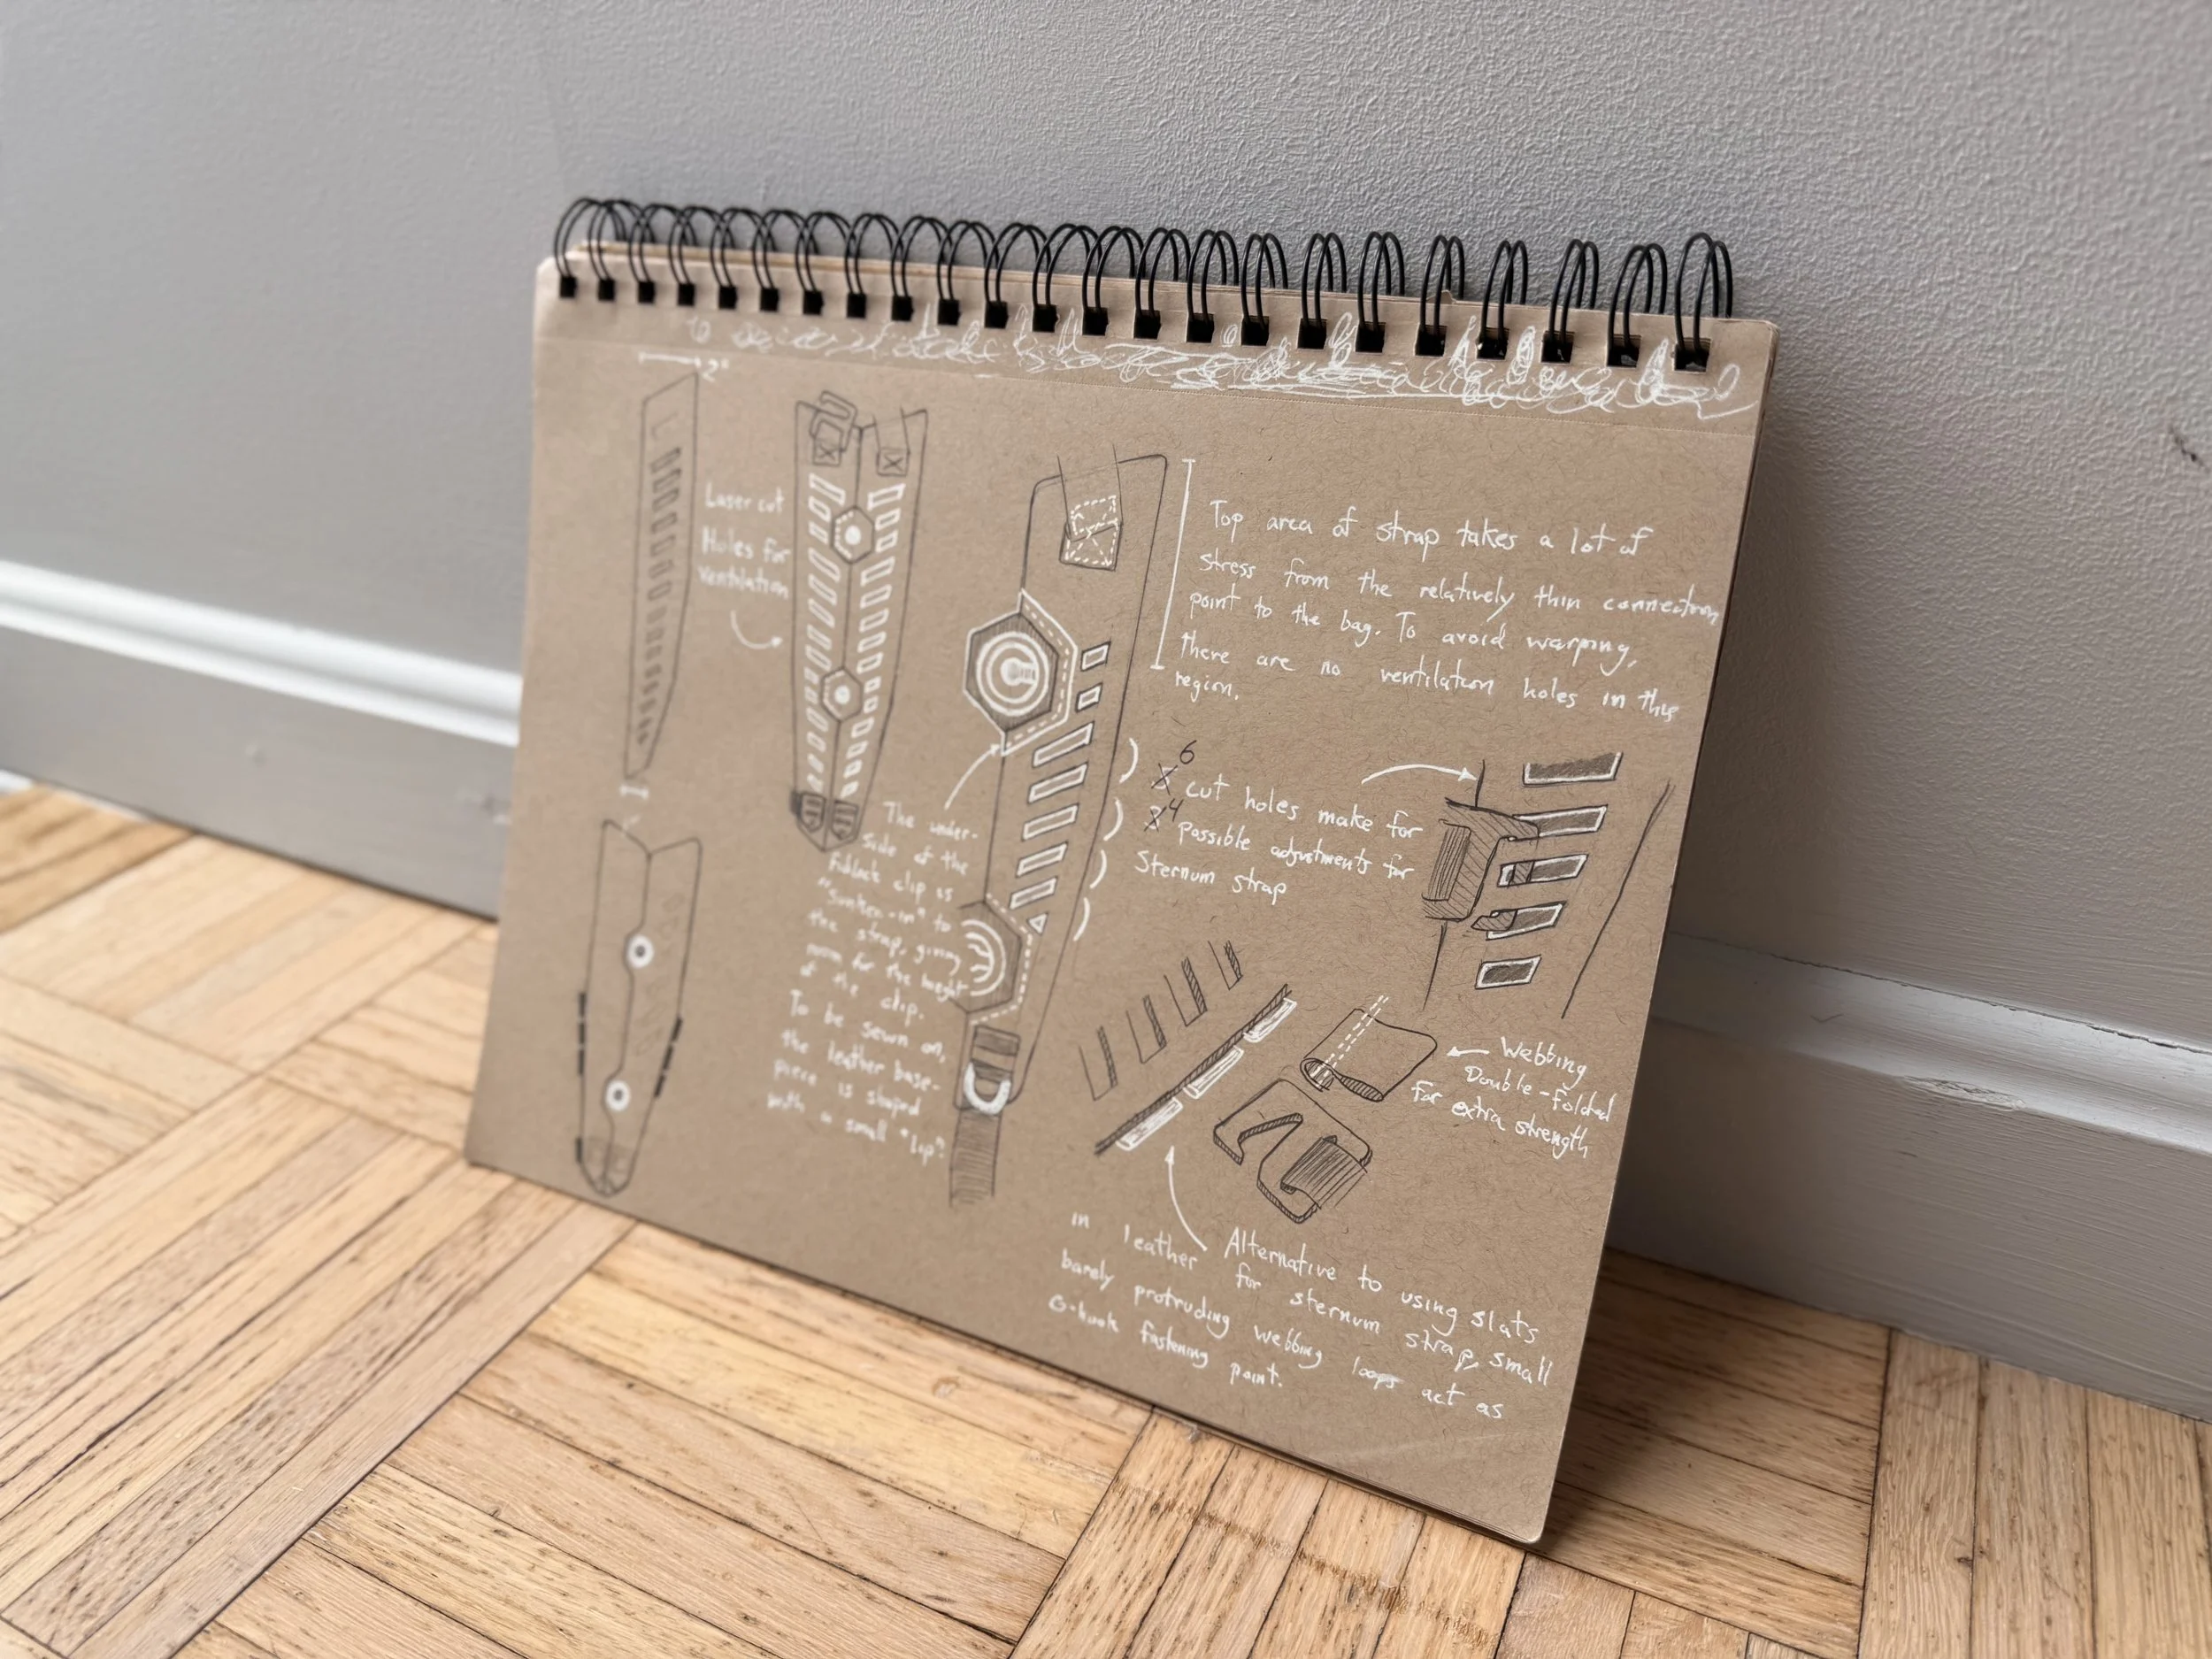 2"
Laser cut
Holes for
ventilation
Top area of strap takes a lot of
stress from the relatively thin connection
point to the bag. To avoid warping,
there are no ventilation holes in this
region.
6
cut holes make for
4
possible adjustments for
Sternum strap
The under-
side of the
Fidlock clip is
"Sunken-in" to
the strap, giving
room for the height
of the clip.
To be sewn on,
the leather base-
piece is shaped
with a small "lip"
Webbing
Double-folded
for extra strength
Alternative to using slats
in leather for sternum strap, small
barely protruding webbing loops act as
G-hook fastening point.